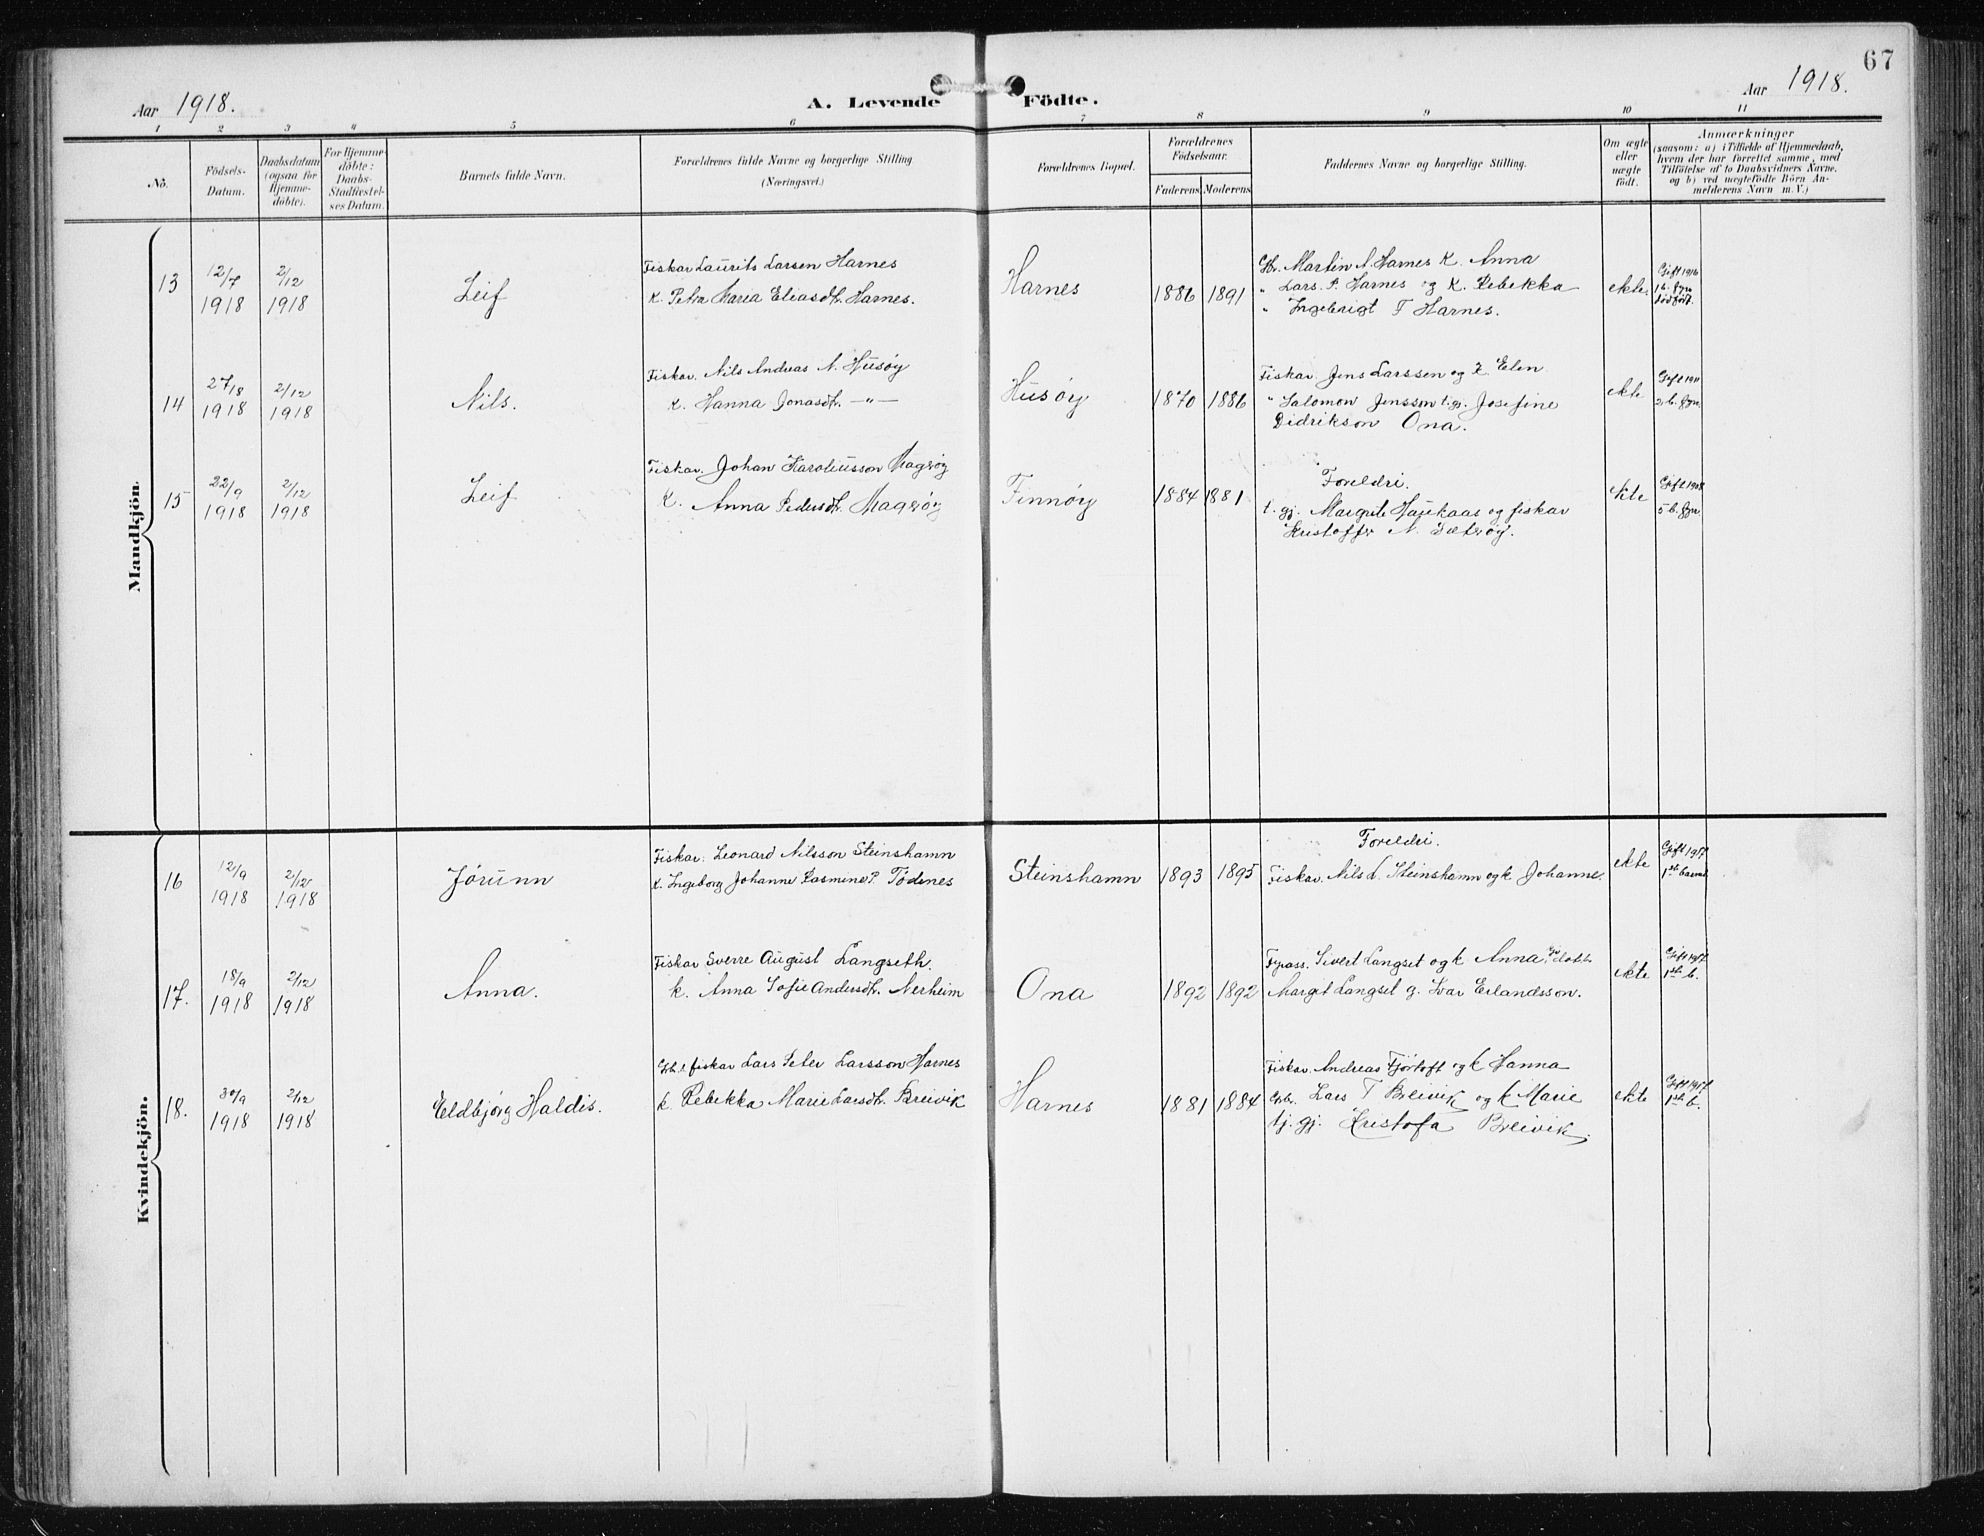 67
Aar 1918.
A. Levende Födte.
Aar 1918.
1 2 3 4 5 6 7 8 9 10 11
No.
Födsels-
Datum.
Daabsdatum
(ogsaa for
Hjemme-
döbte).
For Hjemme-
döbte:
Daabs-
Stadfæstel-
ses Datum.
Barnets fulde Navn.
Forældrenes fulde Navne og borgerlige Stilling
(Næringsvei.)
Forældrenes Bopæl.
Forældrenes
Födselsaar.
Faderens Moderens
Faddernes Navne og borgerlige Stilling.
Om ægte
eller
uægte
födt.
Anmærkninger
(saasom: a) i Tilfælde af Hjemmedaab,
hvem der har forrettet samme, med
Tilföielse af to Daabsvidners Navne,
og b) ved uægtefödte Börn An-
melderens Navn m. V.)
Mandkjön.
13
12/7
1918
2/12
1918
Leif
Fiskar Laurits Larsen Harnes
K. Petra Maria Eliasdt. Harnes.
Harnes
1886 1891
Gb. Martin N. Harnes K. Anna
" Lars P. Harnes og K. Rebekka
" Ingebrigt T Harnes.
ekte.
Gift 1916
1 b. fyr
dödfött.
14
27/8
1918
2/12
1918
Nils.
Fiskar. Nils Andreas N. Husøy
K. Hanna Jonasdt. —"—
Husøy
1870 1886
Fiskar Jens Larssen og K Elen
" Salomon Jensson t.gj. Josefine
Didrikson Ona.
ekte
Gift 1911
2 b. fyr.
15
22/9
1918
2/12
1918
Leif
Fiskar. Johan Karoliusson Magerøy
K. Anna Pedersdt. Magerøy
Finnøy
1884 1881
Foreldri.
t. gj. Margrete Haukaas og fiskar
Kristoffer N. Sætrøy.
ekte
Gift 1908
5 b. fyr
Kvindekjön.
16
12/9
1918
2/12
1918
Jórunn
Fiskar. Leonard Nilsson Steinshamn
K. Ingeborg Johanne Rasmine P. Tödenes
Steinshamn
1893 1895
Foreldri.
Fiskar. Nils L. Steinshamn og k Johanne.
ekte
Gift 1917
1ste barnet
17.
18/9
1918
2/12
1918
Anna.
Fiskar Sverre August Langseth.
K. Anna Sofie Andersdt. Nerheim
Ona
1892 1892
Fyrass. Sivert Langset og k Anna,
Margit Langset g. Ivar Erlandsson.
ekte
Gift 1917
1ste b.
18.
30/9
1918
2/12
1918
Eldbjørg Haldis.
Gb. & fiskar Lars Peter Larsson Harnes
K. Rebekka Marie Larsdt. Breivik
Harnes
1881 1884
Fiskar. Andreas Fjörtoft og k Hanna
Gbr. Lars T Breivik og k Marie
tj. gj. Kristofa Breivik.
ekte
Gift 1917
1ste b.